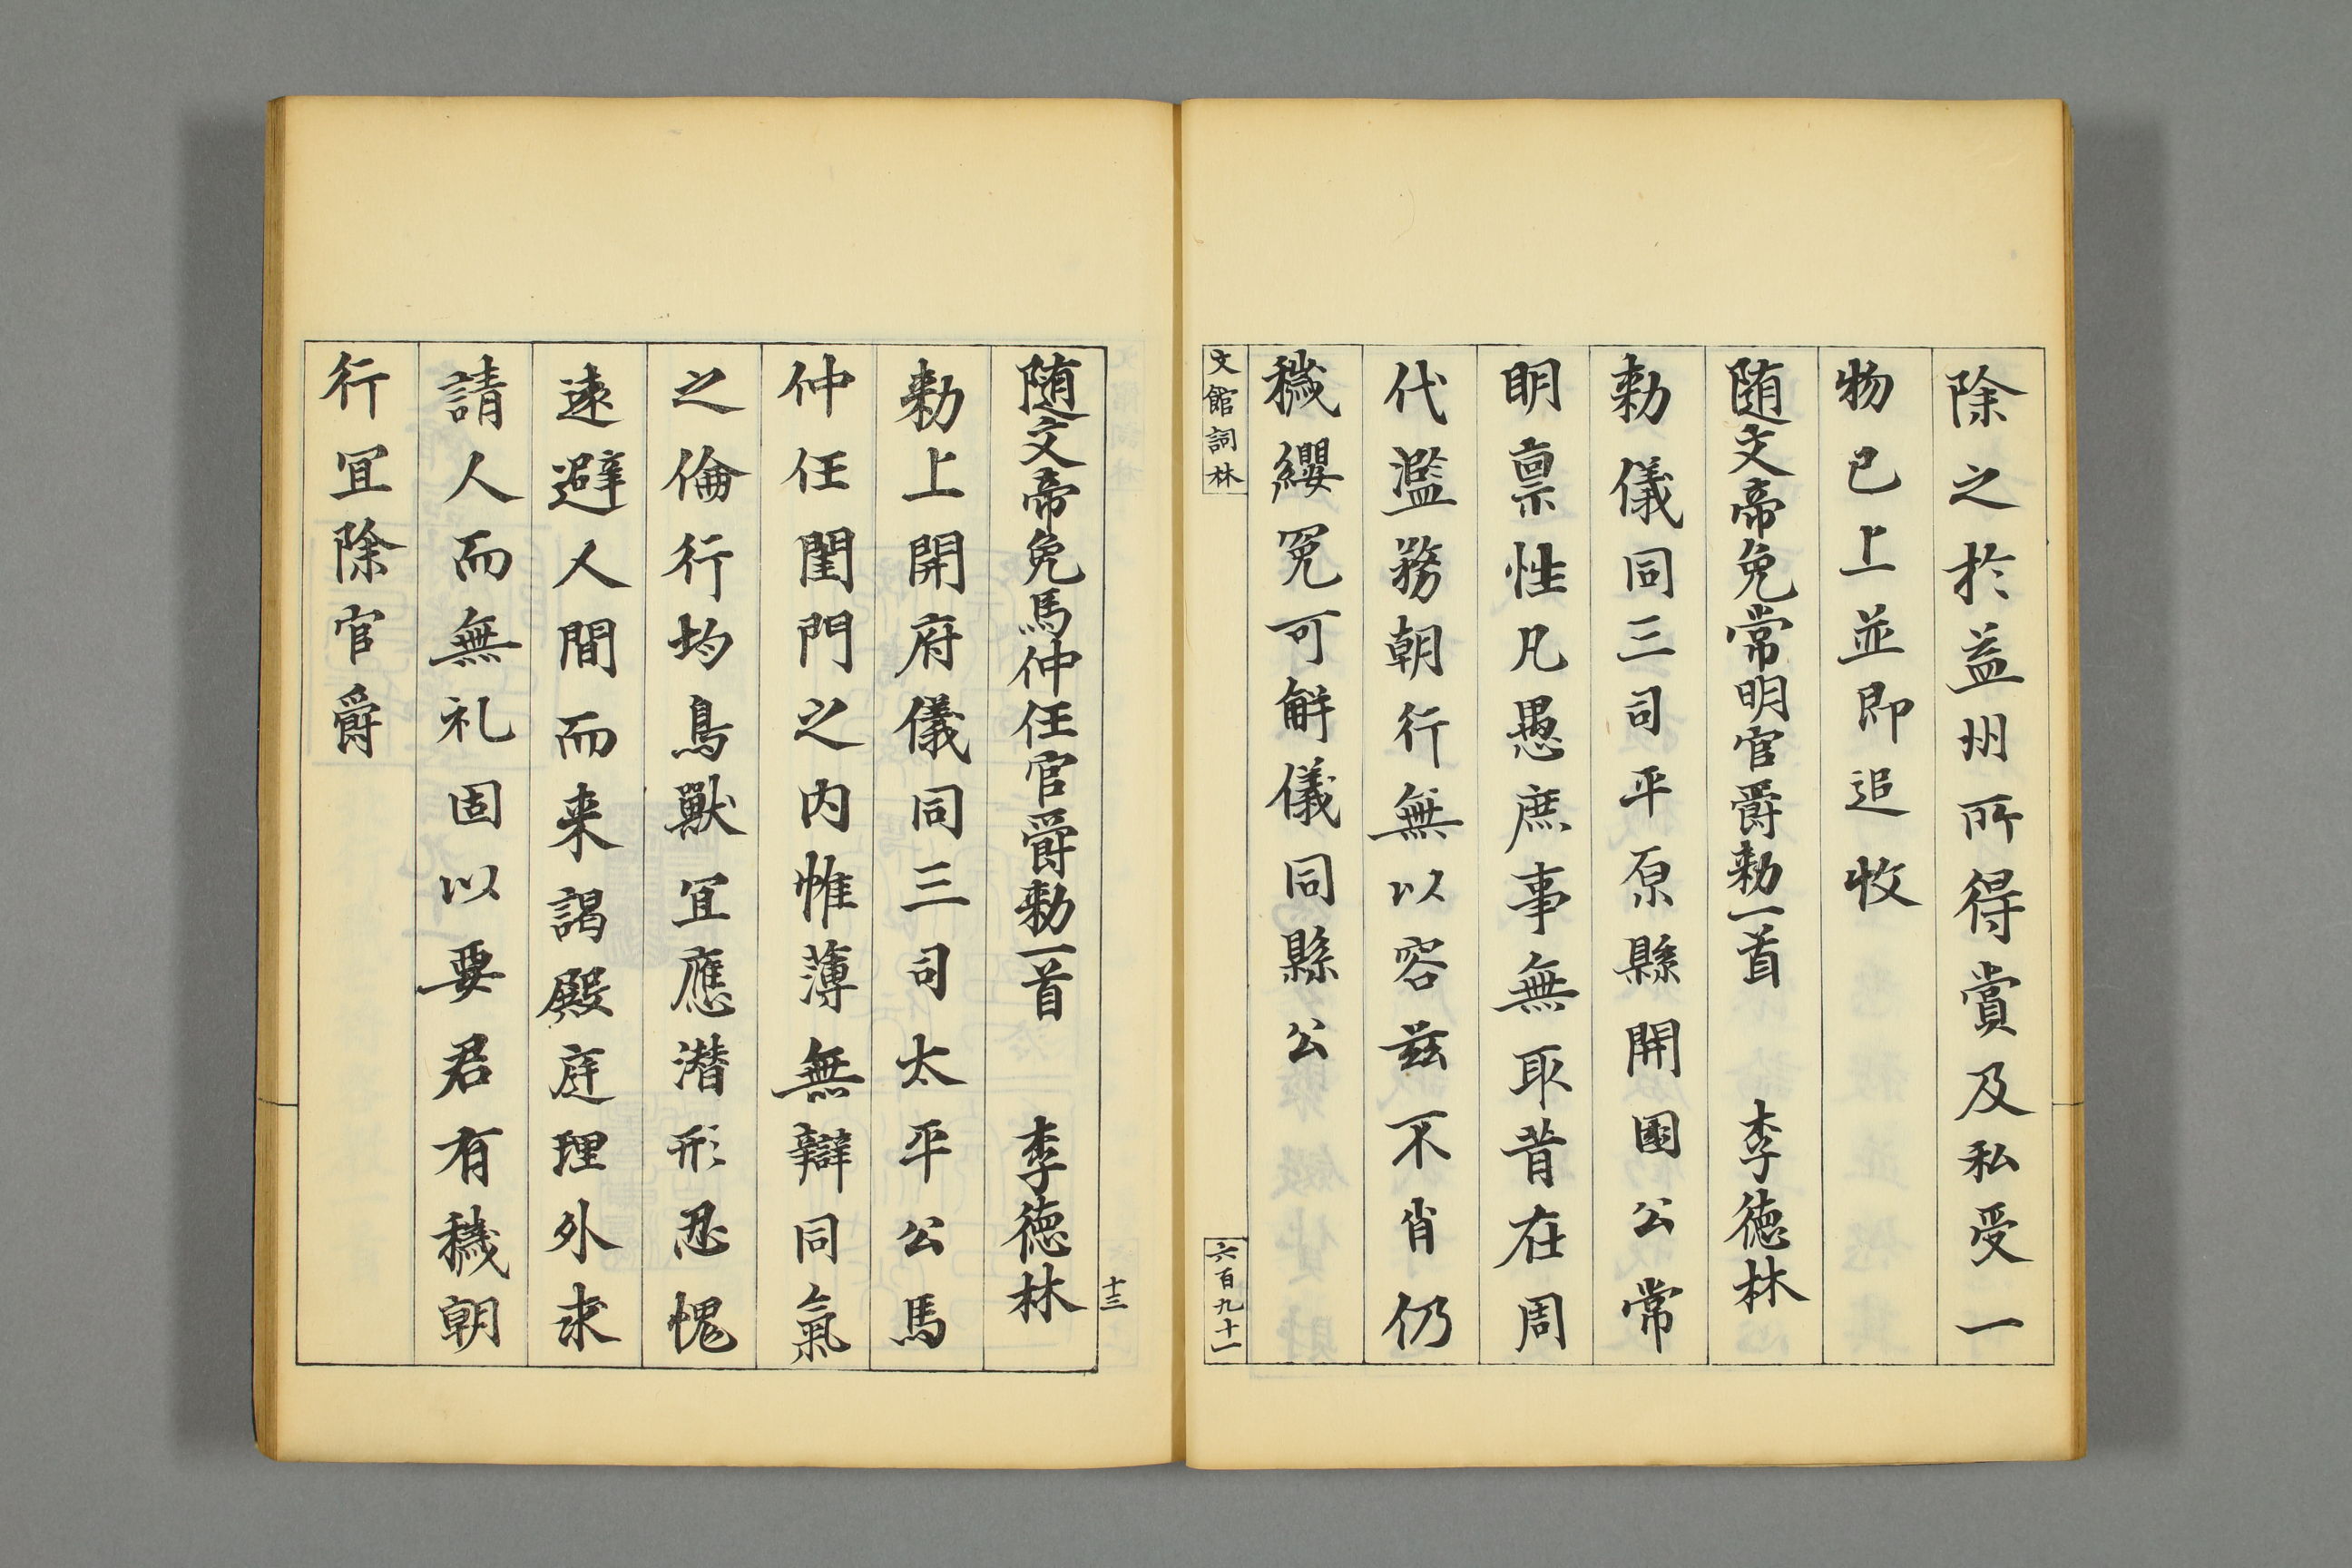 除之於益州所得賞及私受一
物已上並即追收
随文帝免常明官爵勅一首 李徳林
勅儀同三司平原縣開國公常
明禀性凡愚庶事無取昔在周
代濫務朝行無以容兹不肖仍
穢纓冕可解儀同縣公
文館詞林 六百九十一
十三
随文帝免馬仲任官爵勅一首 李徳林
勅上開府儀同三司太平公馬
仲任閨門之内帷薄無辯同氣
之倫行均鳥獸冝應潜形忍愧
遠避人間而来謁殿庭理外求
請人而無礼固以要君有穢朝
行冝除官爵